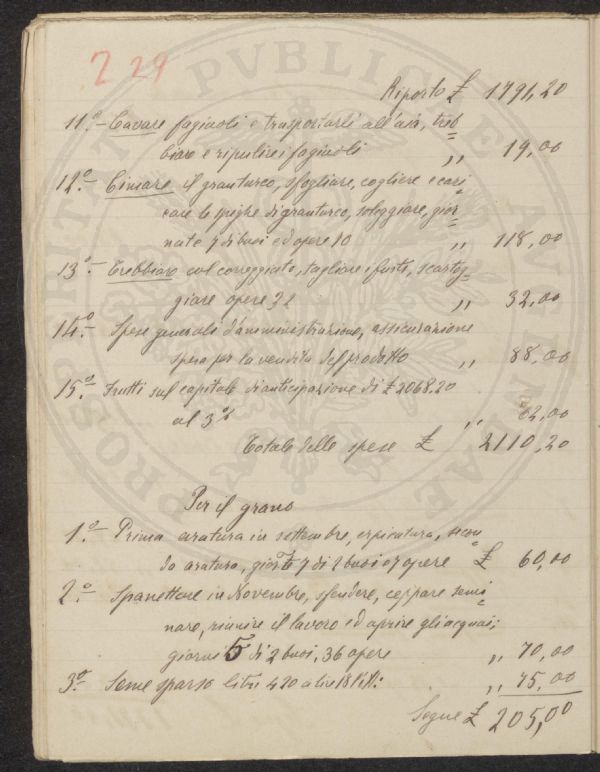 229
Riporto £ 1791,20
11.º- Cavare fagiuoli e trasportarli all'aia, treb=
biare e ripulire i fagiuoli ,, 19,00
12º- Cimare il granturco, sfogliare, cogliere e cari=
care le spighe di granturco, soleggiare, gior=
nate 7 di buoi ed opere 10 ,, 118,00
13º- Trebbiare col correggiato, tagliare i fusti, scartog=
giare opere 32 ,, 32,00
14.º- Spese generali d'amministrazione, assicurazione
spese per la vendita del prodotto ,, 88,00
15º- Frutti sul capitale di anticipazione di £ 2068.20
al 3% ,, 62,00
Totale delle spese £ 2110,20
Per il grano
1.º- Prima aratura in settembre, erpicatura, secon=
da aratura, giorte 7 di 2 buoi e 7 opere £ 60,00
2.º- Spanettare in Novembre, spendere, ceppare semi=
nare, riunire il lavoro ed aprire gli acquai;
giorni 5 di 2 buoi, 36 opere ,, 70,00
3º- Seme sparso litri 420 a lire 18 l'Ett: ,, 75,00
Segue £ 205,00
PVBLICAE
PROSPERITATI
AVGENDAE